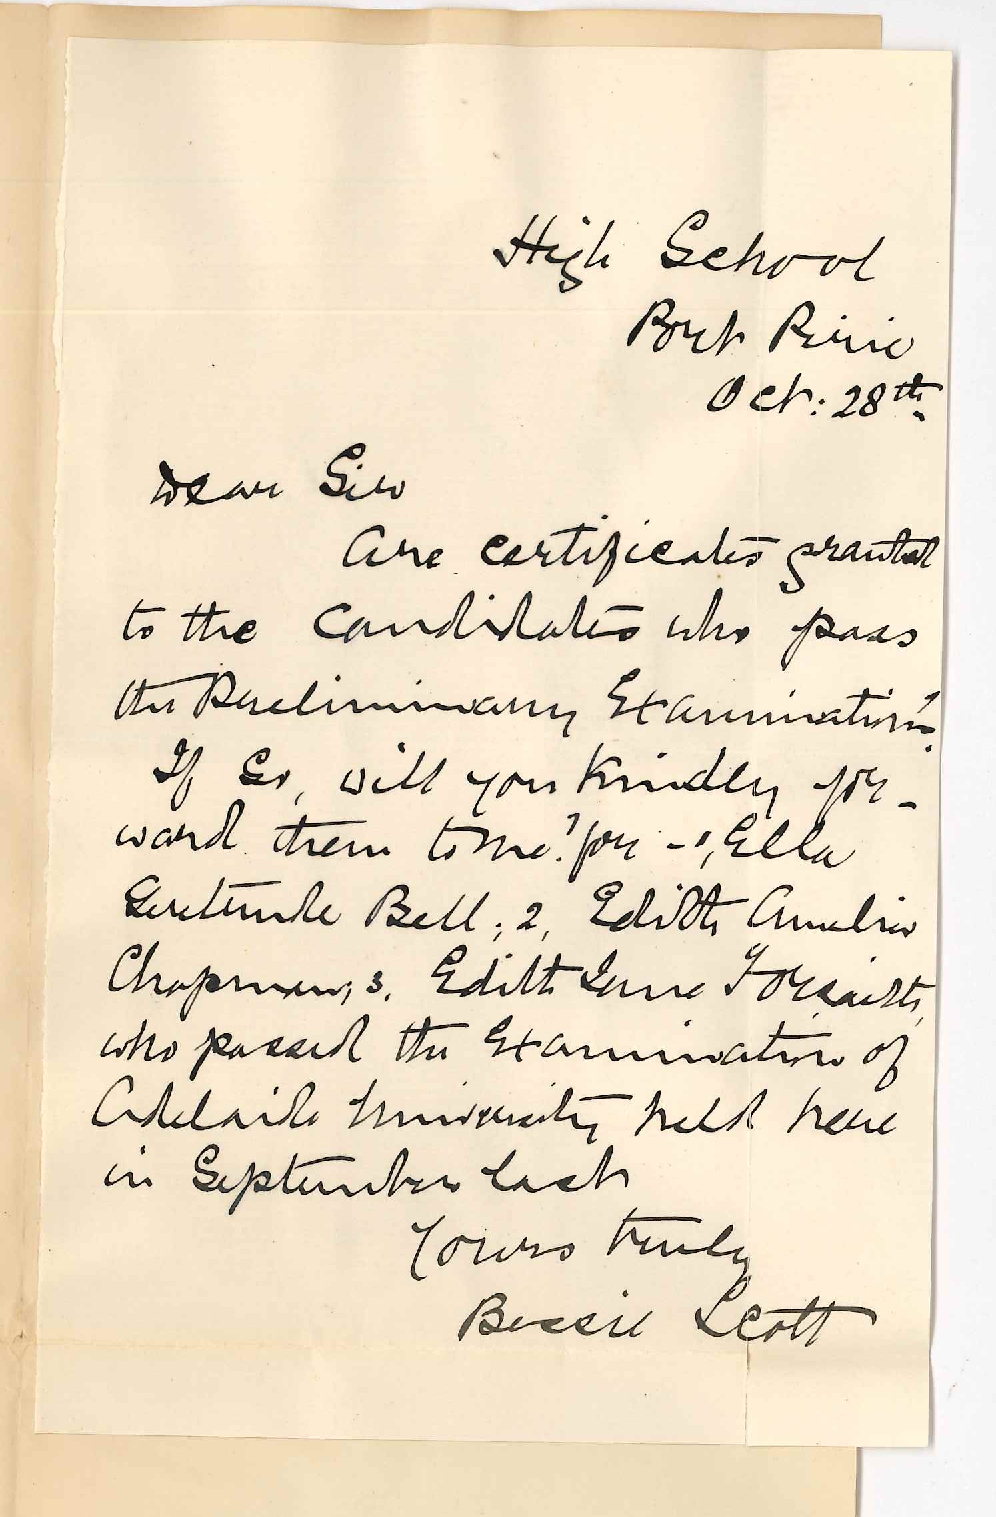 High School
Port Pirie
Oct: 28th.
Dear Sir
Are certificates granted
to the Candidates who pass
the Preliminary Examination?
If so, will you kindly for-
ward them to me? for -1, Ella
Gertrude Bell; 2, Edith Amelia
Chapman, 3. Edith Jane Forsaith,
who passed the Examination of
Adelaide University held here
in September last
Yours truly
Bessie Scott